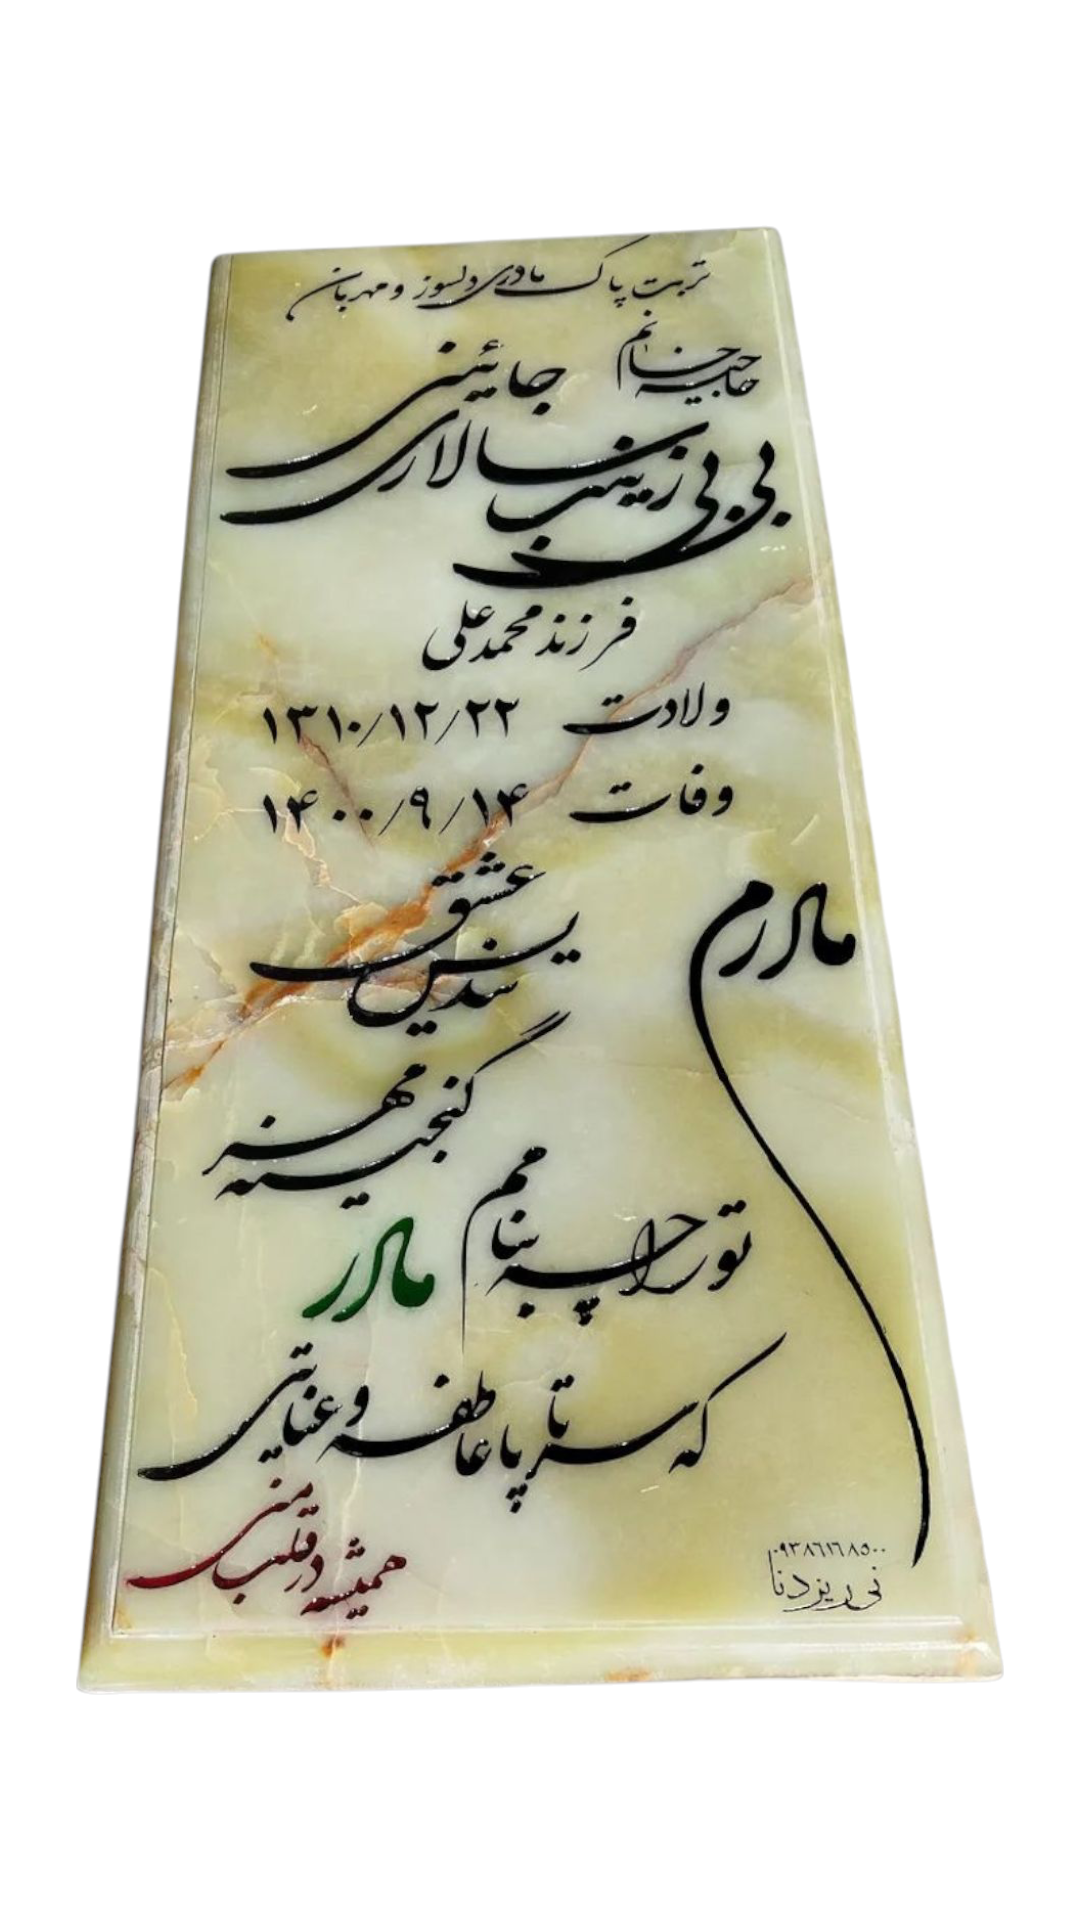 تربت پاک مادری دلسوز و مهربان
حاجیه خانم
بی بی زینب سالاری جائینی
فرزند محمدعلی
ولادت ۱۳۱۰/۱۲/۲۲
وفات ۱۴۰۰/۹/۱۴
مادرم
تندیس عشق
گنجینه مهر
تو را چه بنامم مادر
که سر تا پا عاطفه و عنایتی
همیشه در قلب منی
۰۹۳۸۶۱۶۸۵۰۰
نی ریز دنا